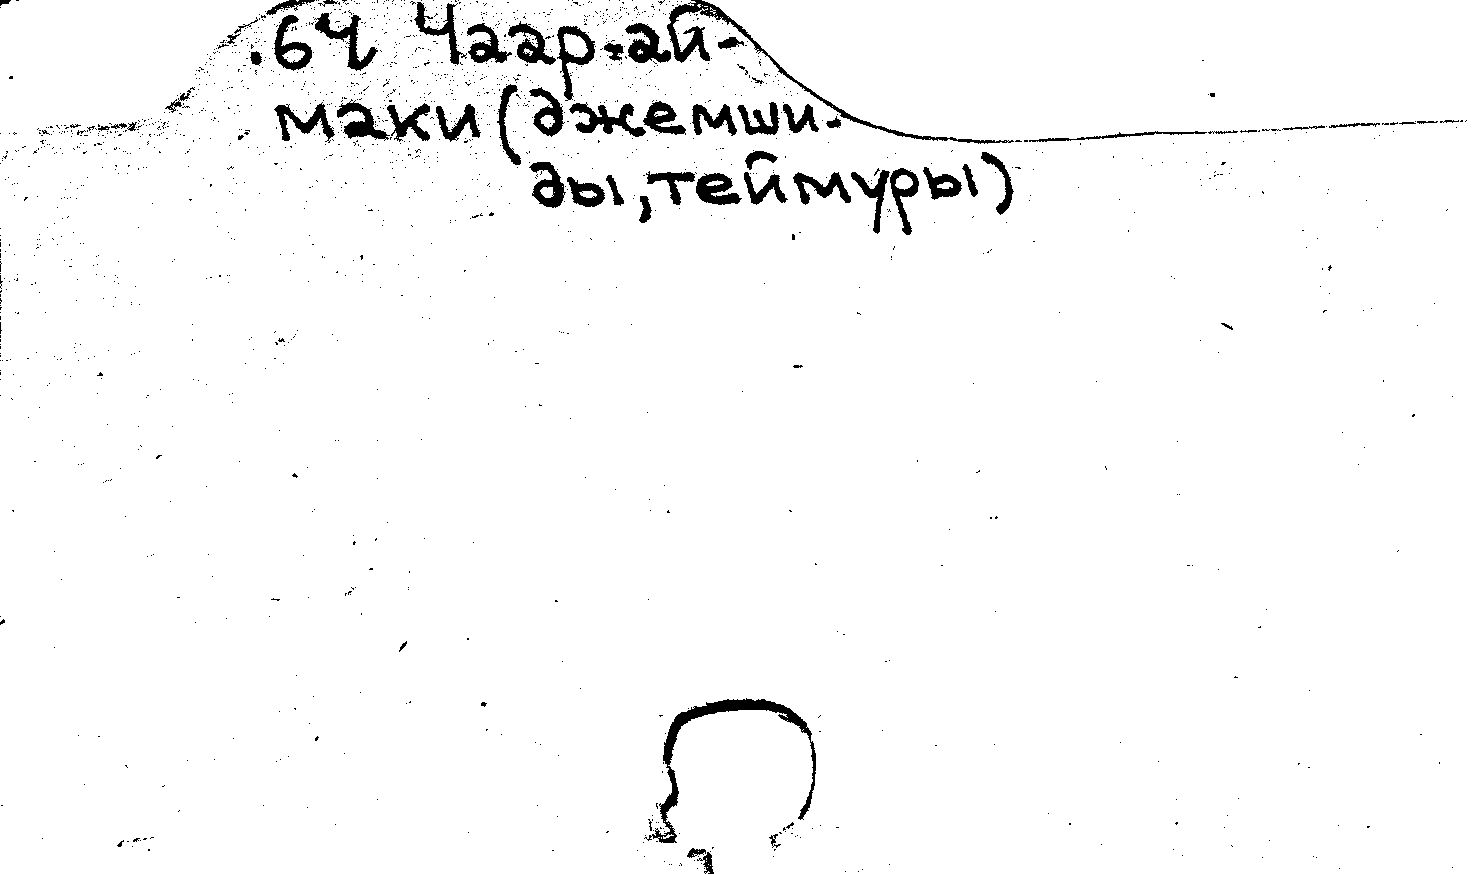 .6Ч Чаар-ай-
маки (джемши-
ды, теймуры)